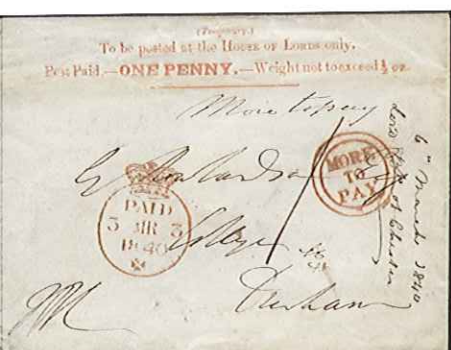 (Temporary.)
To be posted at the HOUSE OF LORDS only.
Post Paid.—ONE PENNY.—Weight not to exceed ½ oz.
More to pay
MORE
TO
PAY
PAID
3 MR 3
1840
College
Durham
6th March 1840
Lord Bishop of Chester